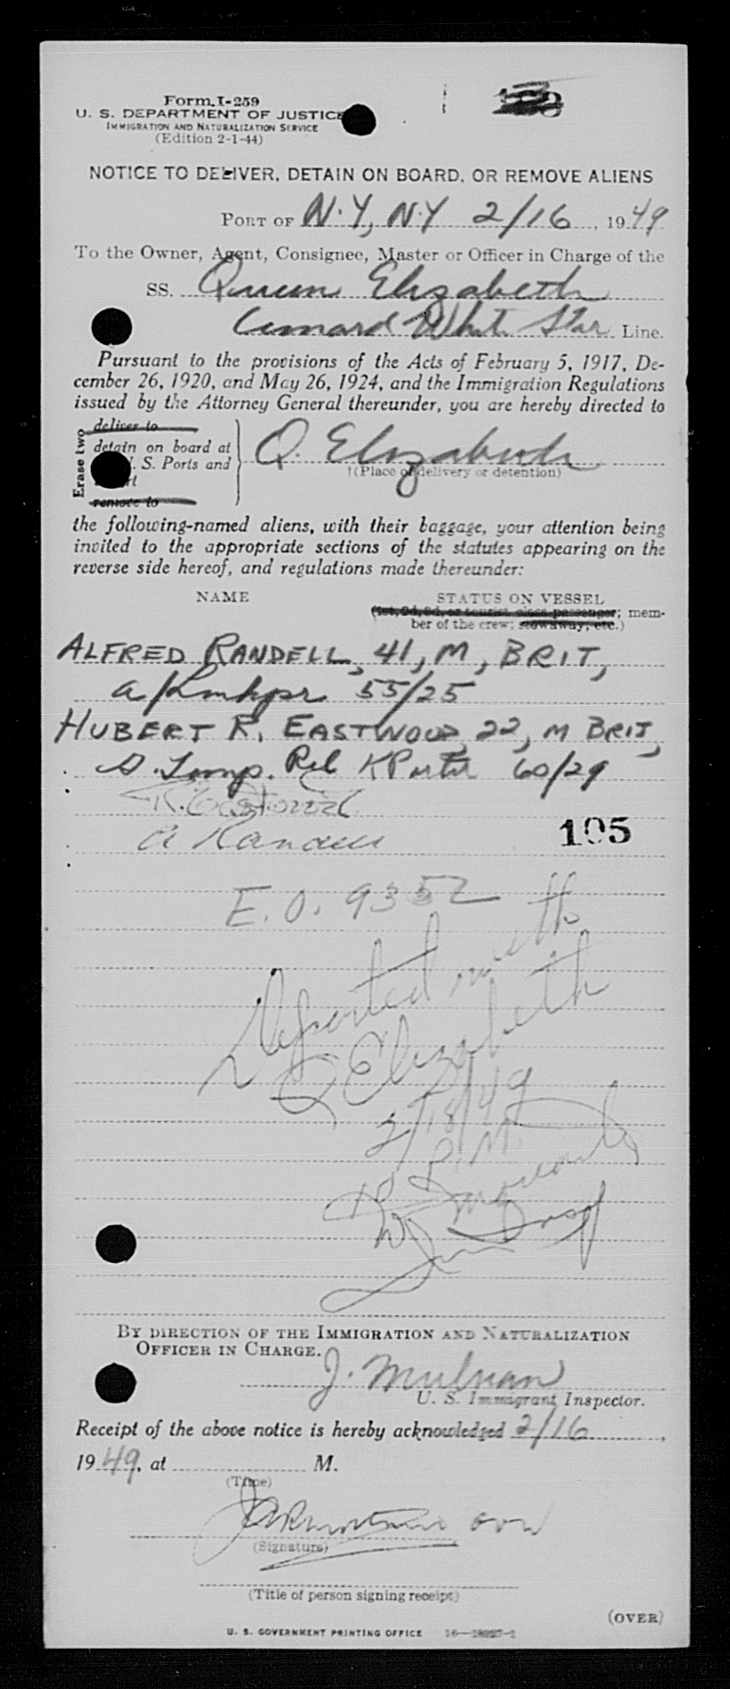 Form I-259
U. S. DEPARTMENT OF JUSTICE
IMMIGRATION AND NATURALIZATION SERVICE
(Edition 2-1-44)
NOTICE TO DELIVER, DETAIN ON BOARD, OR REMOVE ALIENS
PORT OF N.Y, N.Y 2/16, 1949
To the Owner, Agent, Consignee, Master or Officer in Charge of the
SS. Queen Elizabeth
Cunard White Star Line.
Pursuant to the provisions of the Acts of February 5, 1917, De-
cember 26, 1920, and May 26, 1924, and the Immigration Regulations
issued by the Attorney General thereunder, you are hereby directed to
Erase two
deliver to
detain on board at
S. Ports and
remove to
Q. Elizabeth
†(Place of delivery or detention)
the following-named aliens, with their baggage, your attention being
invited to the appropriate sections of the statutes appearing on the
reverse side hereof, and regulations made thereunder:
NAME STATUS ON VESSEL
(1st, 2d, 3d, or tourist class passenger; mem-
ber of the crew; stowaway, etc.)
ALFRED RANDELL, 41, M, BRIT,
55/25
HUBERT R. EASTWOOD, 22, M BRIT,
K Porter 60/29
R. Eastwood
A Randell
195
E. O. 9352
Departed with
Q Elizabeth
2/18/49
P. M.
BY DIRECTION OF THE IMMIGRATION AND NATURALIZATION
OFFICER IN CHARGE.
J. Mulnan
U. S. Immigrant Inspector.
Receipt of the above notice is hereby acknowledged 2/16,
1949, at M.
(Time)
(Signature)
(Title of person signing receipt)
(OVER)
U. S. GOVERNMENT PRINTING OFFICE